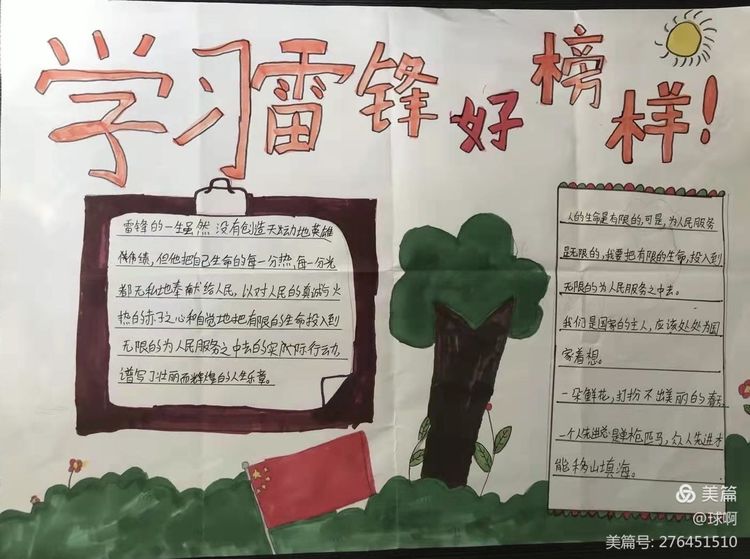 学习雷锋好榜样!
雷锋的一生虽然没有创造天动地英雄
伟绩,但他把自己生命的每一分热,每一分光
都无私地奉献给人民,以对人民的真诚与火
热的赤子之心和自觉地把有限的生命投入到
无限的为人民服务之中去的实际行动,
谱写了壮丽而辉煌的人生乐章。
人的生命是有限的,可是,为人民服务
是无限的,我要把有限的生命,投入到
无限的为人民服务之中去。
我们是国家的主人,应该处处为国
家着想。
一朵鲜花,打扮不出美丽的春天,
一个人先进总是单枪匹马,众人先进才
能移山填海。
美篇
@球啊
美篇号: 276451510